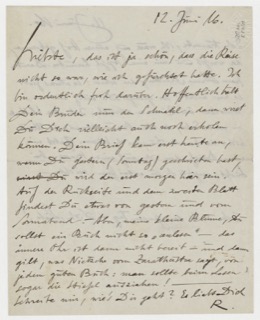 12. Juni 16.
Liebste, das ist ja schön, dass die Reise
nicht so war, wie ich gefürchtet hatte. Ich
bin ordentlich froh darüber. Hoffentlich hält
Dein Bruder nun den Schnabel, dann wirst
Du Dich vielleicht auch noch erholen
können. Dein Brief kam erst heute an,
wenn Du gestern (Sonntag) geschrieben hast,
wird der erst morgen hier sein.
Auf der Rückseite und dem zweiten Blatt
findest Du etwas von gestern und vom
Sonnabend – Aber, meine kleine Blume, Du
sollst ein Buch nicht so, auslesen! – das
innere Ohr ist dann nicht bereit – und dann
gilt, was Nietzsche vom Zarathustra sagt, von
jedem guten Buch: man sollte beim Lesen
sogar die Stiefel ausziehen! –
Schreibe mir, wie's Dir geht? Es liebt Dich
R.